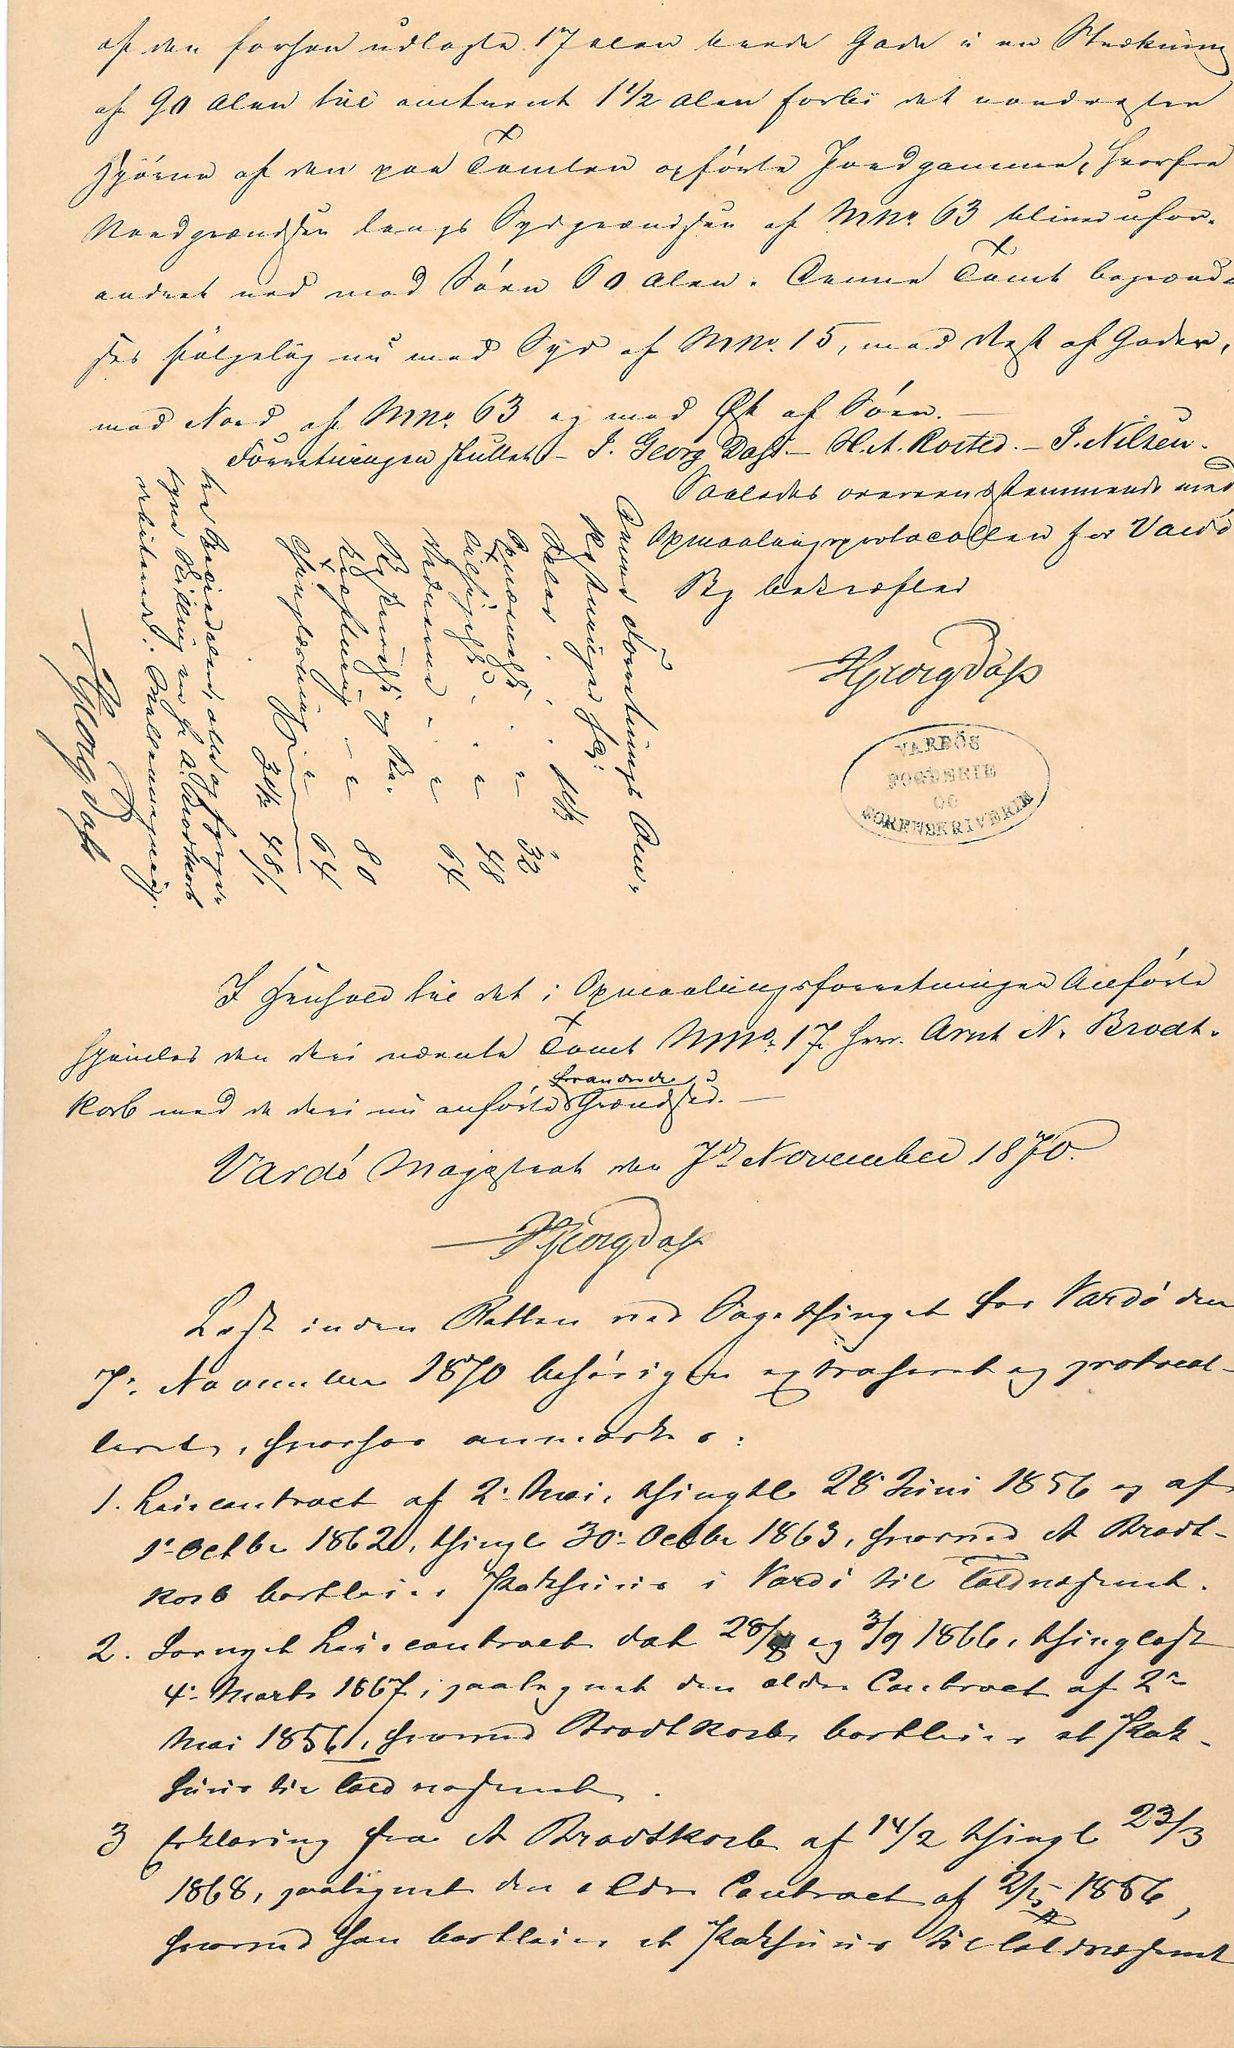 af den forhen udlagte 17 alen brede Gade i en Strækning
af 90 Alen til omtrent 1 1/2 Alen forbi det nordvestre
Hjörne af den paa Tomten opförte Jordgamme, hvorfra
Nordgrændsen langs Sydgrændsen af MNo. 63 bliver ufor-
andret ned mod Söen 80 Alen. Denne Tomt begrænd-
ses fölgelig nu mod Syd af MNo. 15, mod Vest af Gaden,
mod Nord af MNo. 63 og mod Øst af Söen. —
Forretningen sluttet — J. Georg Dass — H. A. Rosted. — J. Nilsen.
Saaledes overeensstemmende med
Opmaalingsprotocollen for Vardö
By bekræftes
HGeorg Dass
VARDÖS
FOGDERIE
OG
SORENSKRIVERIE
Denne Forretnings Om-
kostninger er:
48
64
80
64
HGeorg Dass
I Henhold til det i Opmaalingsforretningen Anförte
skjödes den deri nævnte Tomt MNo. 17 Herr Arnt N. Brodt-
korb med de deri nu anförte forandrede Grændser. —
Vardö Magistrat den 7de November 1870.
HGeorg Dass
Læst inden Retten ved Sagethinget for Vardö den
7. November 1870 behörigen extraheret og protocol-
leret, hvorhos anmærkes:
1. Leiecontract af 2. Mai, thinglæst 28 Juni 1856 og af
1. Octbr 1862, thingl. 30. Octbr 1863, hvorved A Brodt-
korb bortleier Pakhuus i Vardö til Toldvæsenet.
2. Fornyet Leiecontract dat 28/8 og 3/9 1866, thinglæst
4. Marts 1867, paategnet den ældre Contract af 2.
Mai 1856, hvorved Brodtkorb bortleier et Pak-
huus til Toldvæsenet.
3 Erklæring fra A Brodtkorb af 14/2 thingl 23/3
1868, paategnet den ældre Contract af 2/5 1856,
hvorved han bortleier et Pakhuus til Toldvæsenet